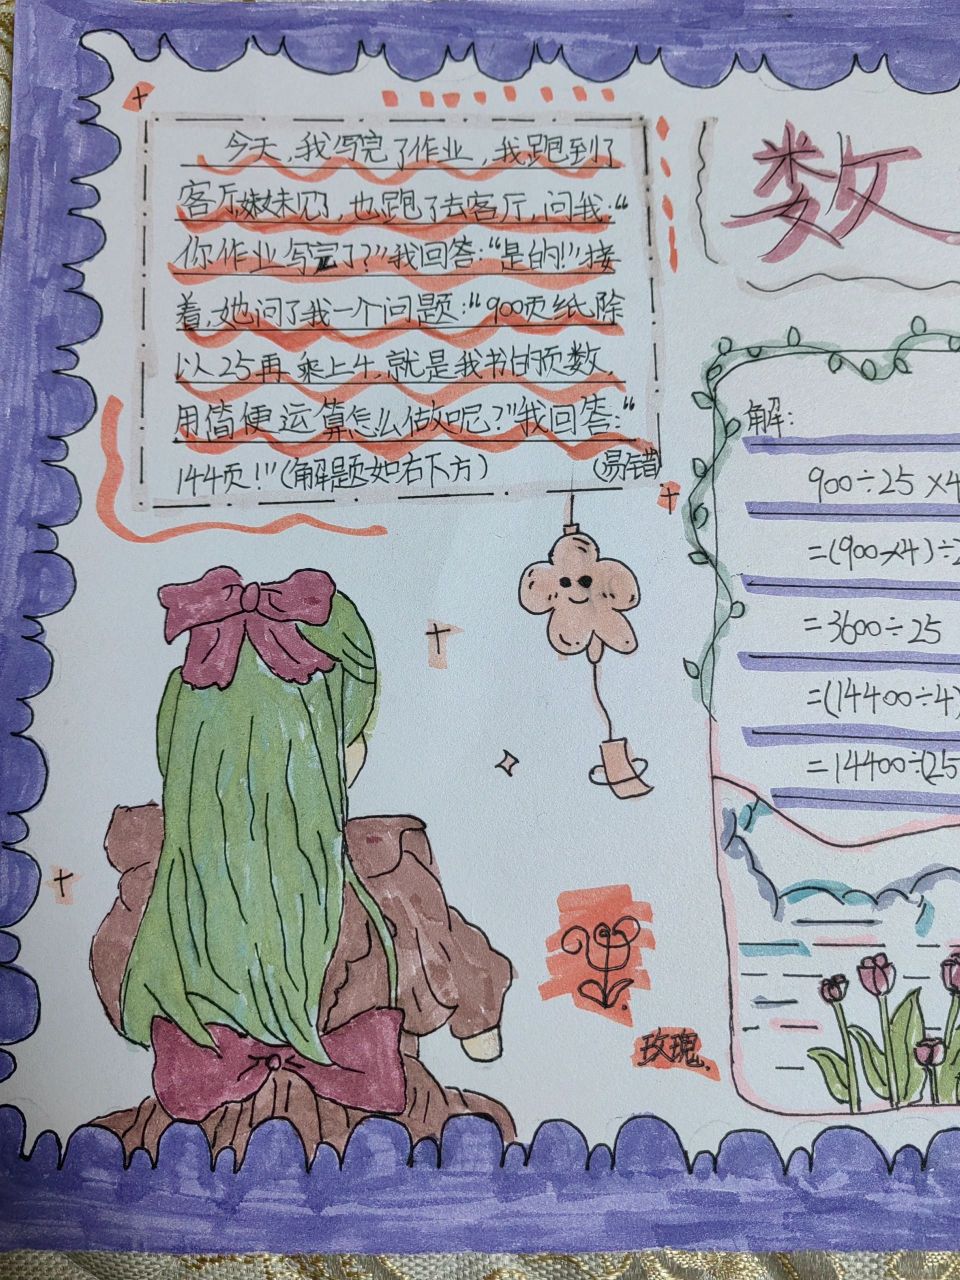 今天,我写完了作业,我跑到了
客厅,妹妹见了,也跑了去客厅,问我:“
你作业写完了?”我回答:“是的!”接
着,她问了我一个问题:“900页纸除
以25再乘上4,就是我书的页数,
用简便运算怎么做呢?”我回答:“
144页!”(解题如右下方) (易错
数
解:
900÷25×4
=(900×4)÷2
=3600÷25
=(14400÷4)
=14400÷(25
玫瑰.